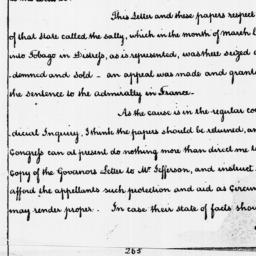 This Letter and these papers respect
of that State called the sally, which in the month of march l
into Tobago in Distress, as is represented, was there seized a
demned and sold - an appeal was made and grant
the Sentence to the admiralty in France.
As the cause is in the regular co
dicial Inquiry. I think the papers should be returned, an
Congress can at present do nothing more than direct me t
Copy of the Govanors Letter to Mr. Jefferson, and instruct
afford the appellants such protection and aid as Circum
may render proper. In case their state of facts shou
265